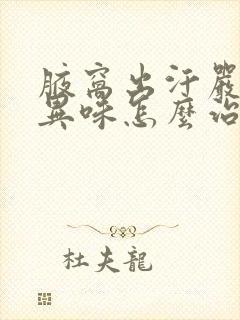 腋窩出汗嚴
異味怎麼治
杜夫龍